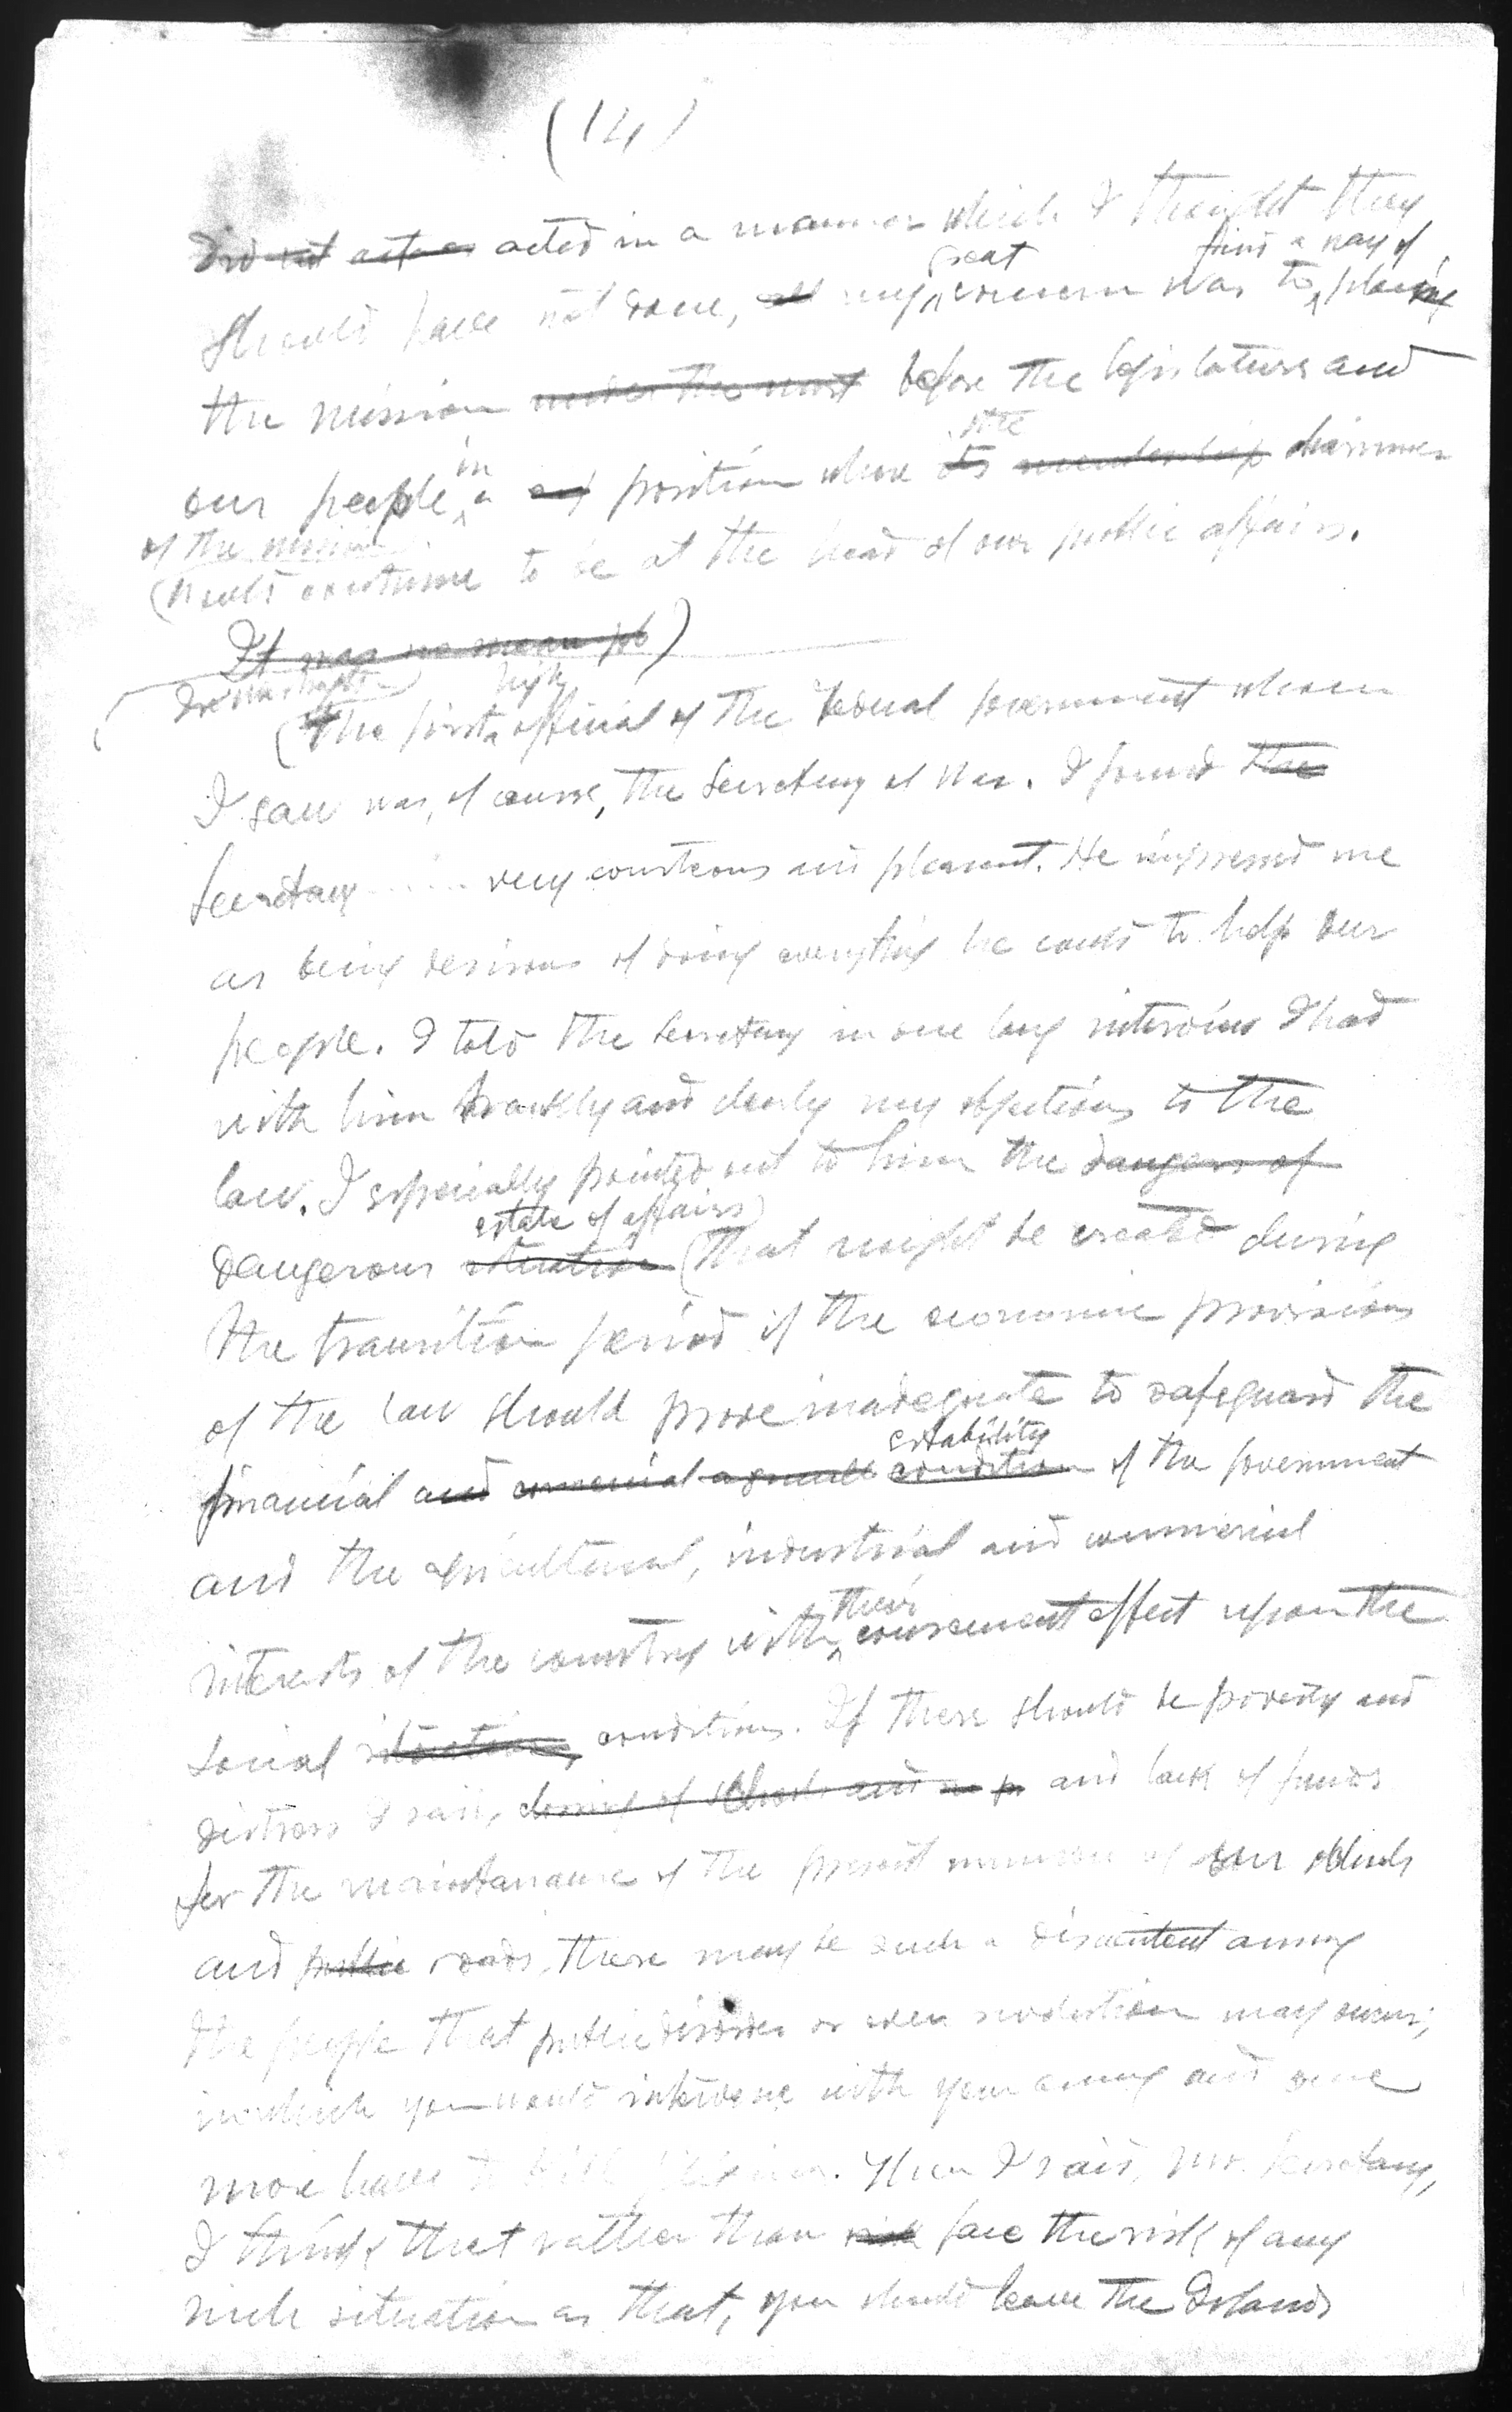 (14)
Did not act as acted in a manner which I thought they
great find a way of
should have not done, all my concern was to placing
the mission before the legislature and
in the
our people a position where its membership chairman
of the mission
(would continue to be at the head of our public affairs.
It was no mean job)
In Washington high
(The first official of the Federal government whom
I saw was, of course, the Secretary of War. I found the
Secretary ..... very courteous and pleasant. He impressed me
as being desirous of doing everything he could to help our
people. I told the Secretary in one long interview I had
with him frankly and clearly my objections to the
law. I especially pointed out to him the dangers of
estate of affairs)
dangerous situation (that might be created during
the transition period if the economic provisions
of the law should prove inadequate to safeguard the
estability
financial and condition of the government
and the agricultural, industrial and commercial
their
interests of the country with consecuent effect upon the
social situation, conditions. If there should be poverty and
distress I said, closing of schools and and lack of funds
for the maintanance of the present number of our schools
and public roads, there may be such a discontent among
the people that public disorder or even revolution may occur;
in which you would intervene with your army and once
more have to kill Filipinos. Then I said, Mr. Secretary,
I think that rather than risk face the risk of any
such situation as that, you should leave the Islands